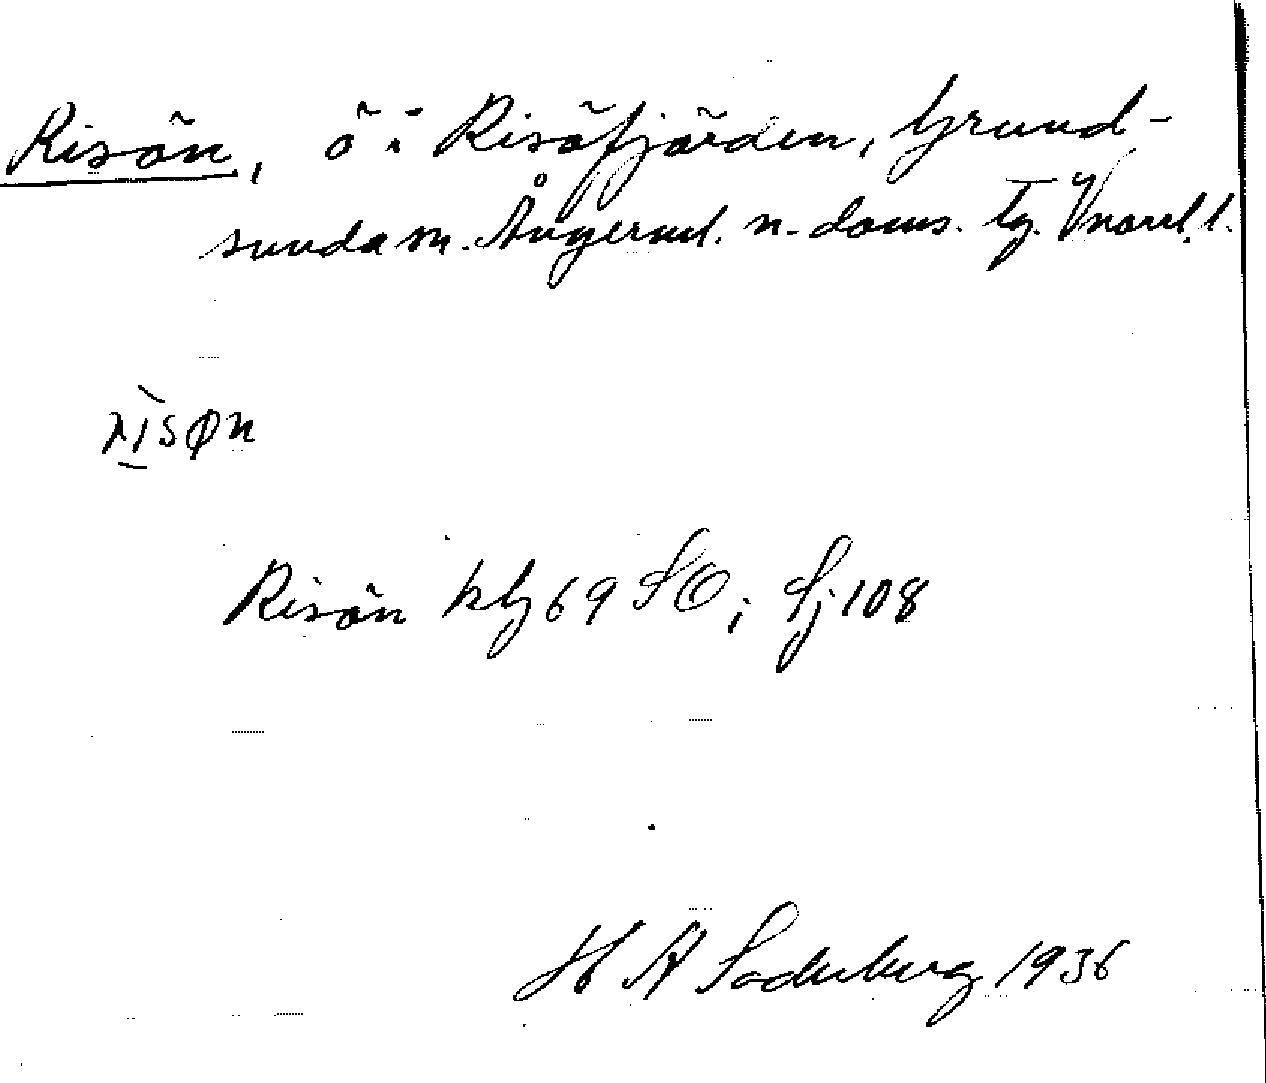 Risön, ö i Risöfjärden, Grund-
sunda sn. Ångerml. n. doms. tg. Vnorrl. l.
rısøn
Risön kbl 69 SO; Sj 108
H A Söderberg 1936